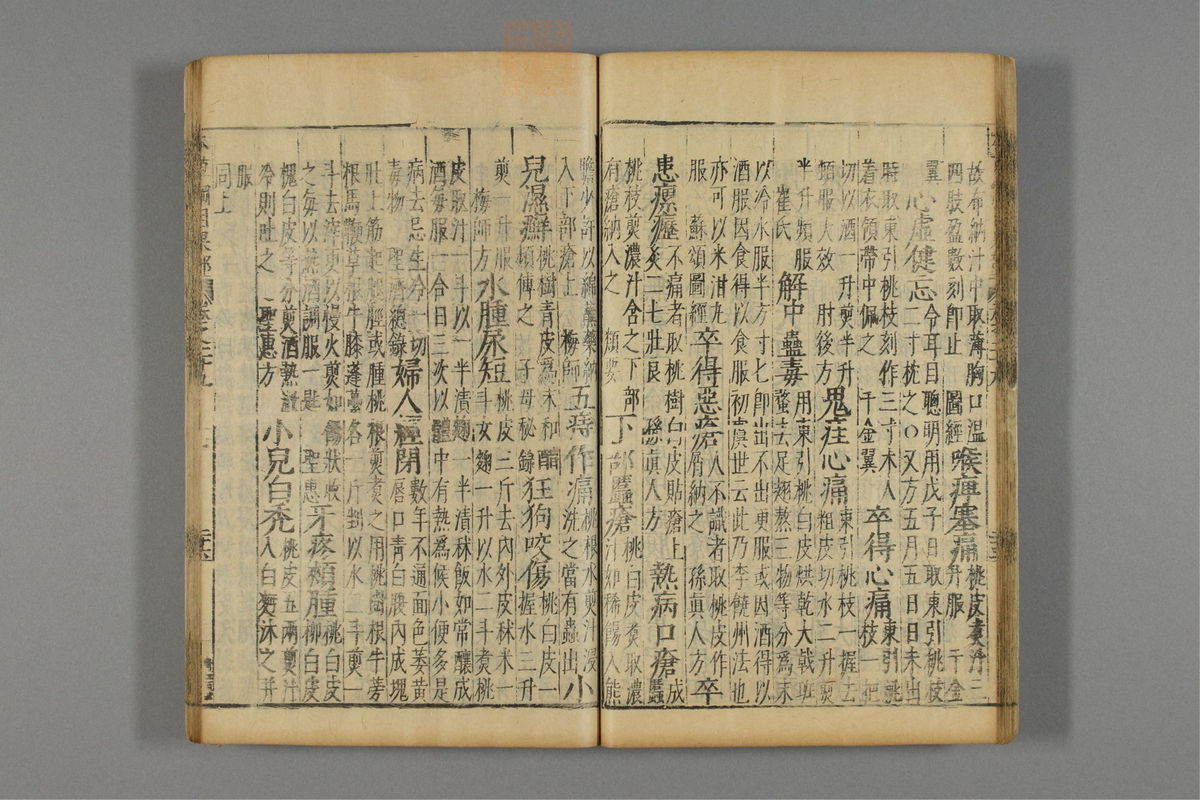 故布納汁中取薄胸口溫
四肢盈數刻即止 圖經 喉痺塞痛 桃皮煮汁三
升服 千金
翼 心虛健忘 令耳目聰明用戊子日取東引桃枝
二寸枕之○又方五月五日日未出
時取東引桃枝刻作三寸木人
着衣領帶中佩之 千金翼 卒得心痛 東引桃枝一把
切以酒一升煎半升
頓服大效 肘後方 鬼疰心痛 東引桃枝一握去
粗皮切水二升煎
半升頻服
崔氏 解中蠱毒 用東引桃白皮烘乾大戟斑
蝥去足翅熬三物等分為末
以冷水服半方寸匕即出不出更服或因酒得以
酒服因食得以食服初虞世云此乃李饒州法也
亦可以米泔丸
服 蘇頌圖經 卒得惡瘡 人不識者取桃皮作
屑納之 孫真人方 卒
患瘰癧 不痛者取桃樹白皮貼瘡上
灸二七壯良 孫真人方 熱病口瘡 成
䘌
桃枝煎濃汁含之下部
有瘡納入之 類要 下部䘌瘡 桃白皮煮取濃
汁如稀餳入熊
膽少許以綿蘸藥納
入下部瘡上 梅師 五痔作痛 桃根水煎汁浸
洗之當有蟲出 小
兒濕癬 桃樹青皮為末和醋
頻傅之 子母秘錄 狂狗咬傷 桃白皮一
握水三升
煎一升服
梅師方 水腫尿短 桃皮三斤去內外皮秫米一
斗女麴一升以水二斗煮桃
皮取汁一斗以一半漬麴一半漬秫飯如常釀成
酒每服一合日三次以體中有熱為候小便多是
病去忌生冷一切
毒物 聖濟總錄 婦人經閉 數年不通面色萎黃
唇口青白腰內成塊
肚上筋起腿脛或腫桃樹根牛蒡
根馬鞭草根牛膝蓬虆各一斤剉以水三斗煎一
斗去滓更以慢火煎如餳狀收
之每以熱酒調服一匙 聖惠 牙疼頰腫 桃白皮
柳白皮
槐白皮等分煎酒熱漱
冷則吐之 聖惠方 小兒白禿 桃皮五兩煎汁
入白麵沐之并
服
同上